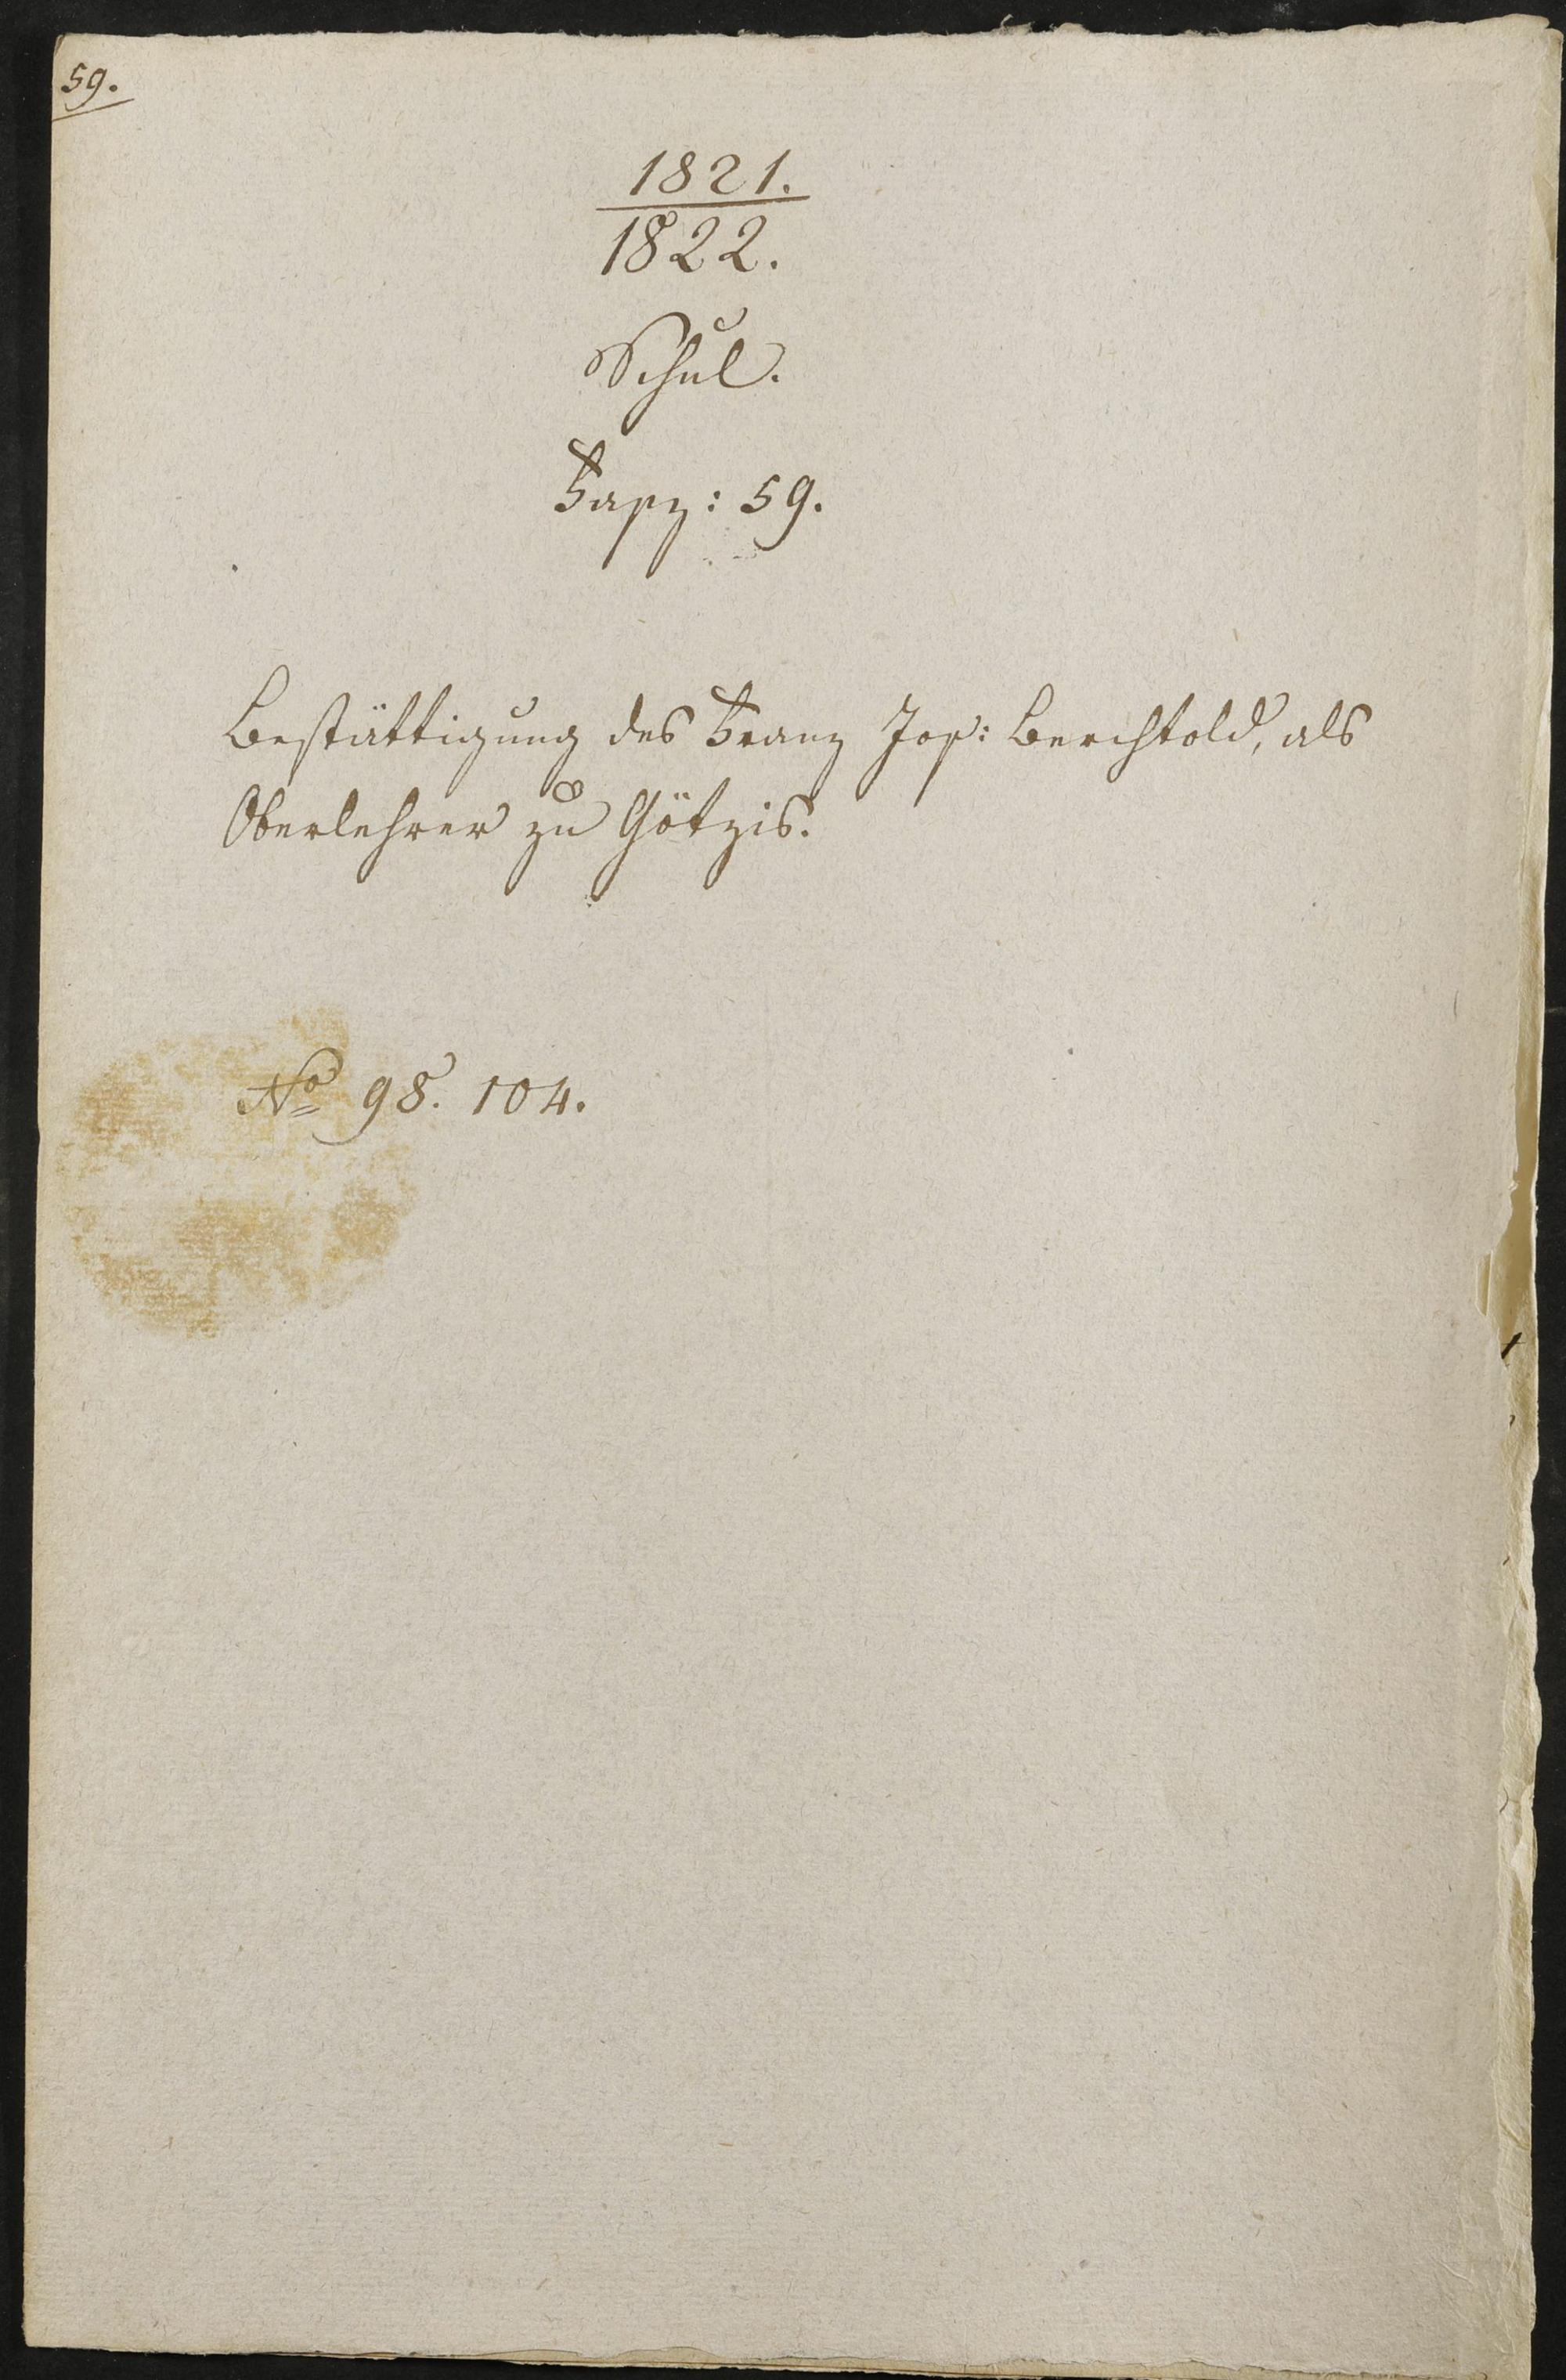 59.
1821.
1822.
Schul.
Fasz: 59.
Bestättigung des Franz Jos: Berchtold, als
Oberlehrer zu Götzis.
No 98. 104.